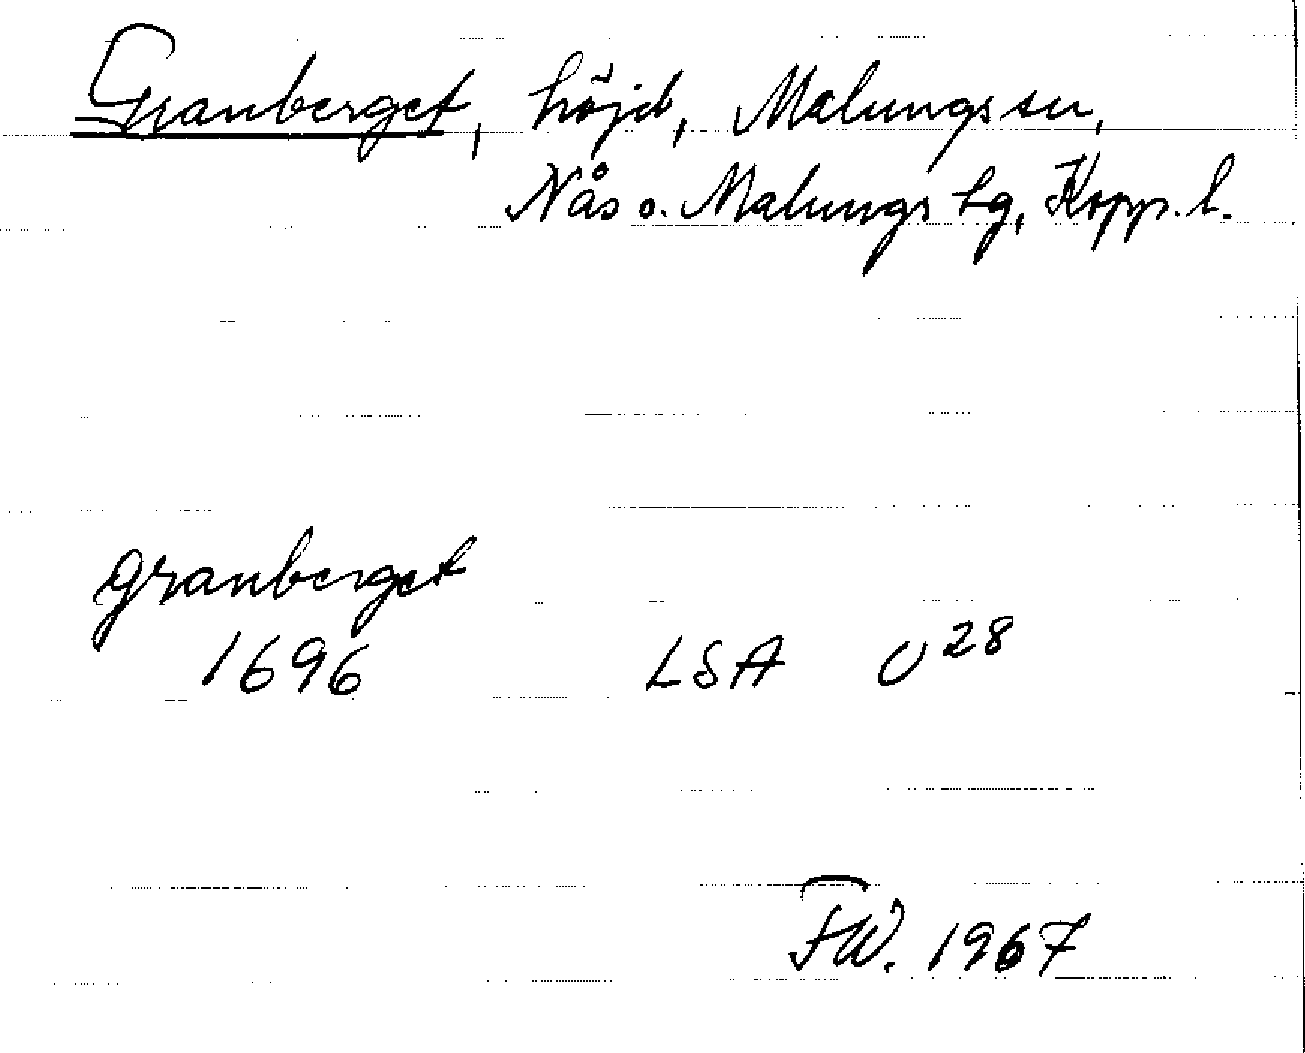 Granberget, höjd, Malungs sn,
Nås o. Malungs tg, Kopp. l.
granberget
1696 LSA U28
FW. 1967